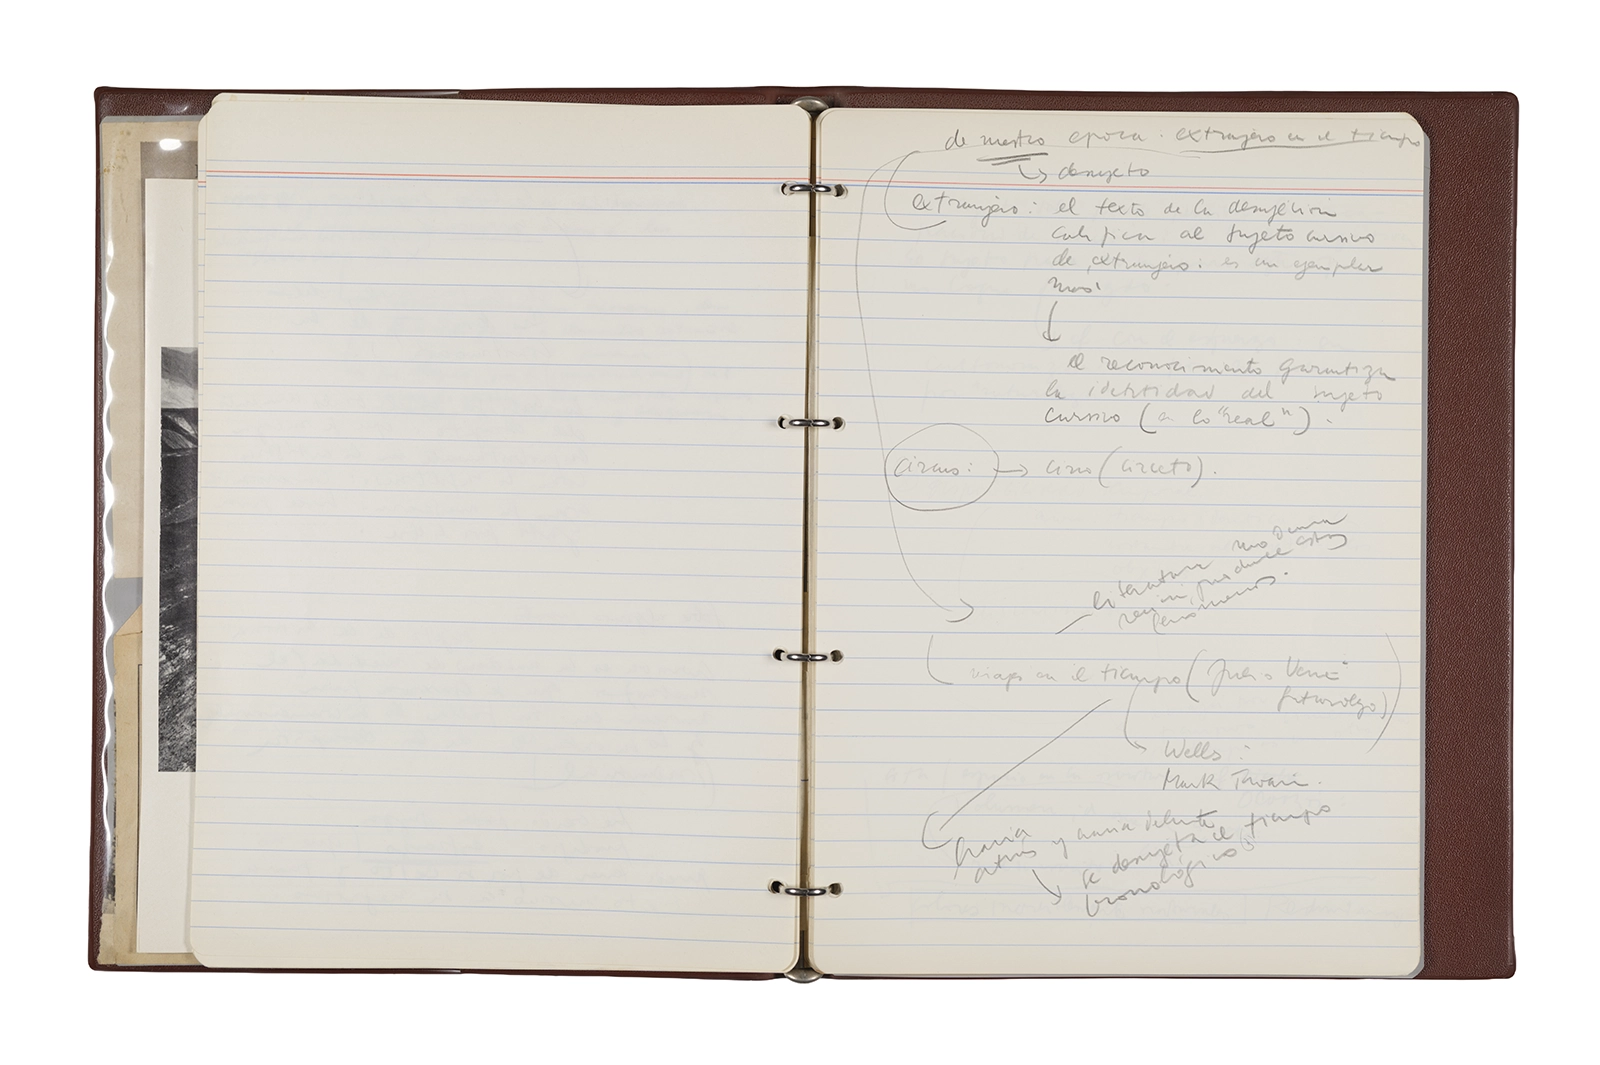 de nuestra epoca. extranjero en el tiempo
desujeto
extranjero: el texto de la desujeción
califica al sujeto cursivo
de extranjero: es un ejemplar
mas!
el reconocimiento garantiza
la identidad del sujeto
cursivo (a lo "real").
circus: circo (circuito).
literatura moderna
produce estos
fenomenos.
viaje en el tiempo (Julio Verne
futurólogo)
Wells:
Mark Twain.
hacia
atrás y hacia delante
se desujeta el tiempo
cronológico